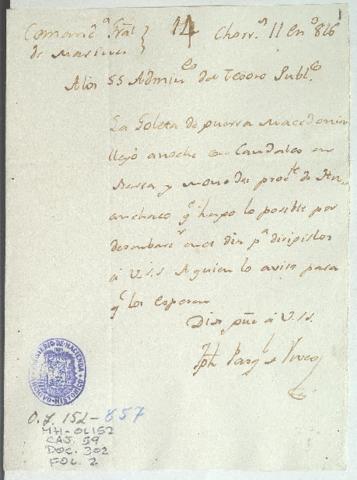 Comand.ª Gral
de Marina
14
Chorr.s 11 En.º 826
A los SS Admin.es del Tesoro Publ.co
La Goleta de guerra Macedonia
llegó anoche con Caudales en
Barra y moneda proc.te de
q.e hago lo posible por
desembarc.r en el dia p.a dirigirlos
á V.SS. A quien lo aviso para
q.e los esperen
Dios gue á V.SS.
O.L. 152-857
MH-OL152
CAJ. 59
DOC. 302
FOL. 2